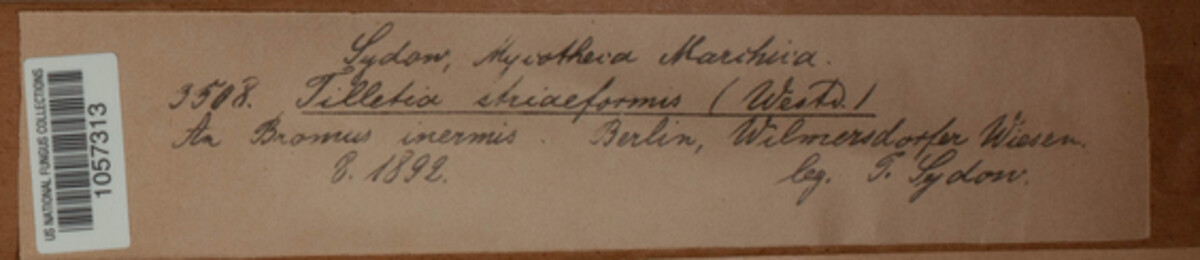 US NATIONAL FUNGUS COLLECTIONS
1057313
Sydow, Mycotheca Marchica.
3508. Tilletia striaeformis (Westd.)
An Bromus inermis. Berlin, Wilmersdorfer Wiesen.
8. 1892. leg. P. Sydow.